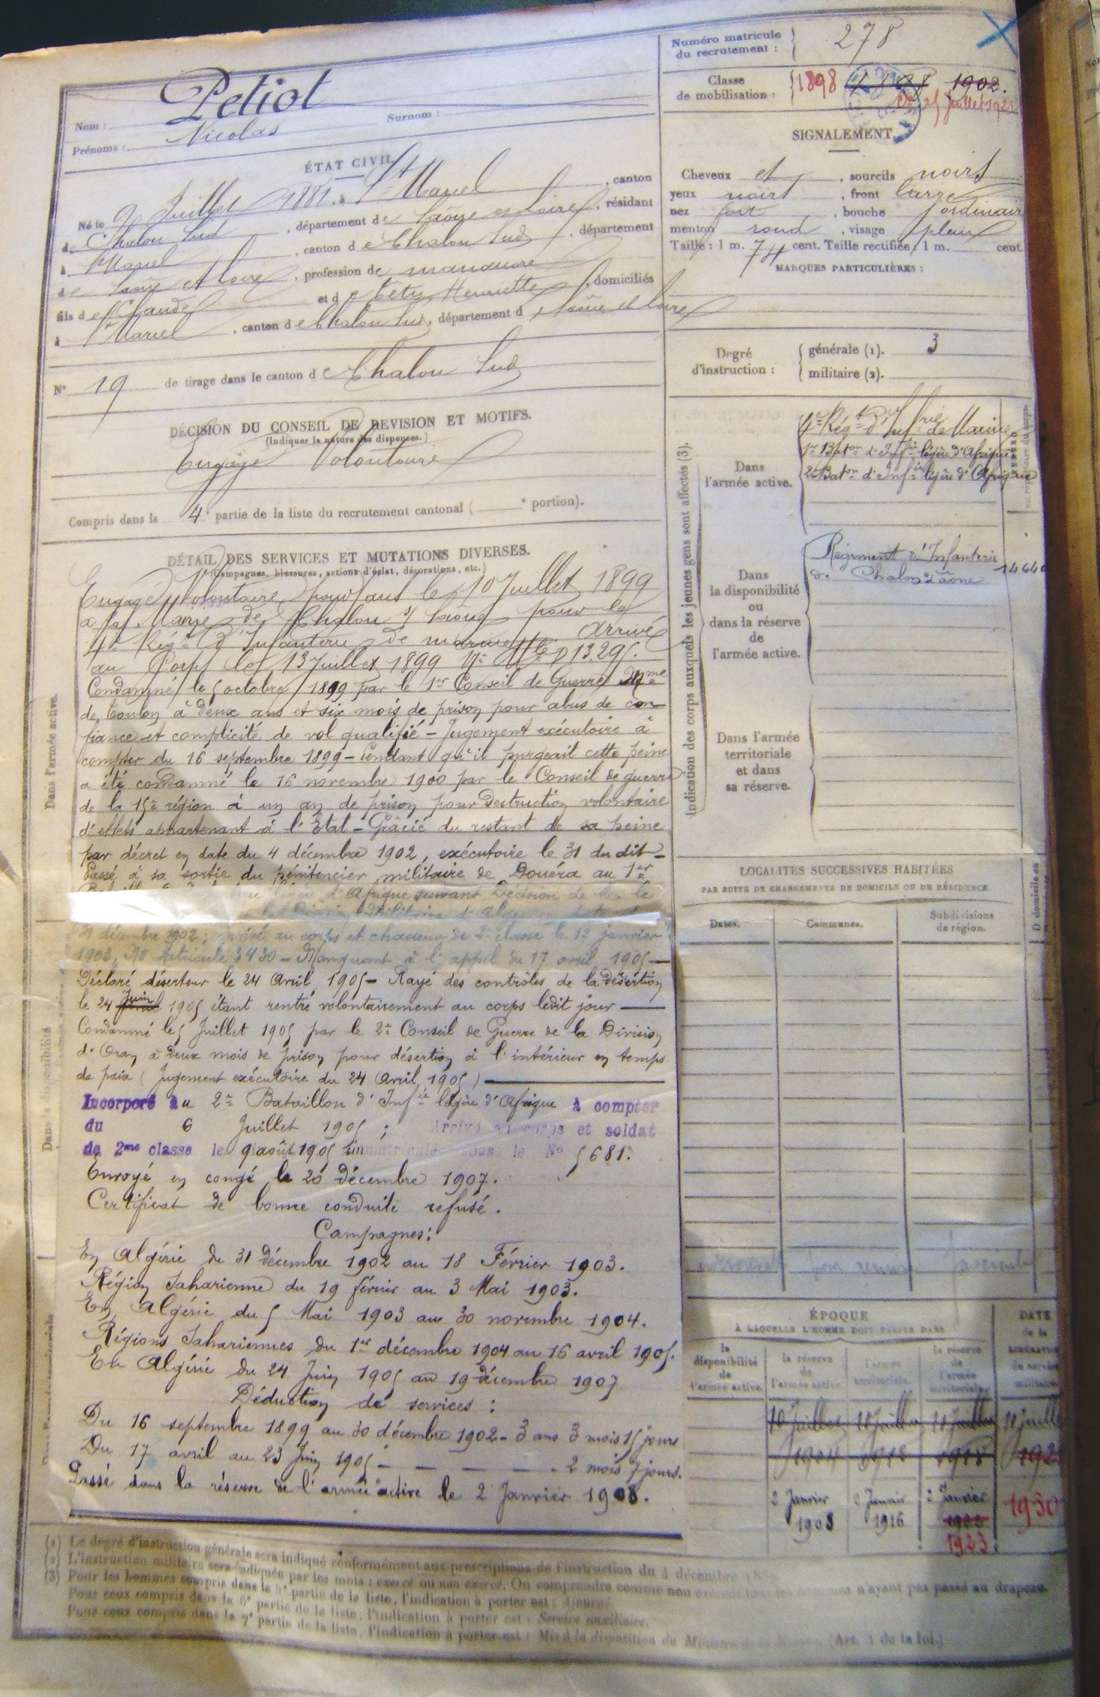 Nom : Petiot
Surnom :
Prénoms : Nicolas
ÉTAT CIVIL
Né le 9 Juillet 1881, à St Marcel, canton
de Chalon Sud, département de Saône et Loire, résidant
à St Marcel, canton de Chalon Sud, département
de Saône et Loire, profession de manœuvre
fils de Claude et de Henriette, domiciliés
à St Marcel, canton de Chalon Sud, département de Saône et Loire
N° 19 de tirage dans le canton de Chalon Sud
DÉCISION DU CONSEIL DE REVISION ET MOTIFS.
(Indiquer la nature des dispenses.)
Engagé Volontaire
Compris dans la 4e partie de la liste du recrutement cantonal ( e portion).
DÉTAIL DES SERVICES ET MUTATIONS DIVERSES.
(Campagnes, blessures, actions d'éclat, décorations, etc.)
Engagé Volontaire pour ans le 10 Juillet 1899
à la Mairie de Chalon s/ Saône pour le
4e Régt d'Infanterie de marine Arrivé
au Corps le 13 Juillet 1899
Condamné le 5 octobre 1899 par le 1er Conseil de Guerre
de Toulon à deux ans et six mois de prison pour abus de con-
fiance et complicité de vol qualifié - Jugement exécutoire à
compter du 16 septembre 1899 - Pendant qu'il purgeait cette peine
a été condamné le 16 novembre 1900 par le Conseil de guerre
de la 15e région à un an de prison pour destruction volontaire
d'effets appartenant à l'État - Gracié du restant de sa peine
par décret en date du 4 décembre 1902, exécutoire le 31 du dit -
Passé, à sa sortie du pénitencier militaire de Douéra au 1er
d'Afrique suivant Décision de
31 décembre 1902; arrivé au corps et chasseur de 2e classe le 12 janvier
1903, No Matricule 3430 - Manquant à l'appel du 17 avril 1905 -
Déclaré déserteur le 24 Avril 1905 - Rayé des contrôles de la désertion
le 24 Juin 1905 étant rentré volontairement au corps ledit jour
Condamné le 5 Juillet 1905 par le 2e Conseil de Guerre de la Division
d'Oran à deux mois de prison pour désertion à l'intérieur en temps
de paix (Jugement exécutoire du 24 Avril 1905)
Incorporé au 2e Bataillon d'Infie légère d'Afrique à compter
du 6 Juillet 1905; Arrivé au corps et soldat
de 2me classe le 9 août 1905 Immatriculé sous le No 5681.
Envoyé en congé le 20 décembre 1907.
Certificat de bonne conduite refusé.
Campagnes:
En Algérie du 31 décembre 1902 au 18 Février 1903.
Région Saharienne du 19 février au 3 Mai 1903.
En Algérie du 5 Mai 1903 au 30 novembre 1904.
Régions Sahariennes du 1er décembre 1904 au 16 avril 1905.
En Algérie du 24 Juin 1905 au 19 décembre 1907
Déduction de services :
Du 16 septembre 1899 au 30 décembre 1902 - 3 ans 3 mois 15 jours
Du 17 avril au 23 Juin 1905 - - - - - 2 mois 7 jours.
Passé dans la réserve de l'armée active le 2 Janvier 1908.
Dans l'armée active.
Numéro matricule du recrutement : 278
Classe de mobilisation : 1898 1902.
25 Juillet 1921
SIGNALEMENT
Cheveux et, sourcils noirs
yeux noirs, front large
nez fort, bouche ordinaire
menton rond, visage plein
Taille : 1 m. 74 cent. Taille rectifiée, 1 m. cent.
MARQUES PARTICULIÈRES :
Degré d'instruction : générale (1). 3
militaire (2).
Indication des corps auxquels les jeunes gens sont affectés (3).
Dans l'armée active.
4e Régt d'Infrie de Marine
1er Baton d'Infie légère d'Afrique
2e Baton d'Infie légère d'Afrique
Dans la disponibilité ou dans la réserve de l'armée active.
Régiment d'Infanterie
de Chalon s Saône
Dans l'armée territoriale et dans sa réserve.
LOCALITÉS SUCCESSIVES HABITÉES
PAR SUITE DE CHANGEMENTS DE DOMICILE OU DE RÉSIDENCE.
Dates.
Communes.
Subdivisions de région.
ÉPOQUE
À LAQUELLE L'HOMME DOIT PASSER DANS
la disponibilité de l'armée active.
la réserve de l'armée active.
l'armée territoriale.
la réserve de l'armée territoriale.
DATE de la libération du service militaire.
10 Juillet 1904
2 Janvier 1908
2 Janvier 1916
2 Janvier 1922 1923
1930
(1) Le degré d'instruction générale sera indiqué conformément aux prescriptions de l'instruction du 4 décembre
(2) L'instruction militaire sera indiquée par les mots : exercé ou non exercé. On comprendra comme non exercés tous les hommes n'ayant pas passé au drapeau.
(3) Pour les hommes compris dans la 5e partie de la liste, l'indication à porter est : Ajourné.
Pour ceux compris dans la 6e partie de la liste, l'indication à porter est : Service auxiliaire.
Pour ceux compris dans la 7e partie de la liste, l'indication à porter est : Mis à la disposition du Ministre de la (Art. 4 de la loi.)